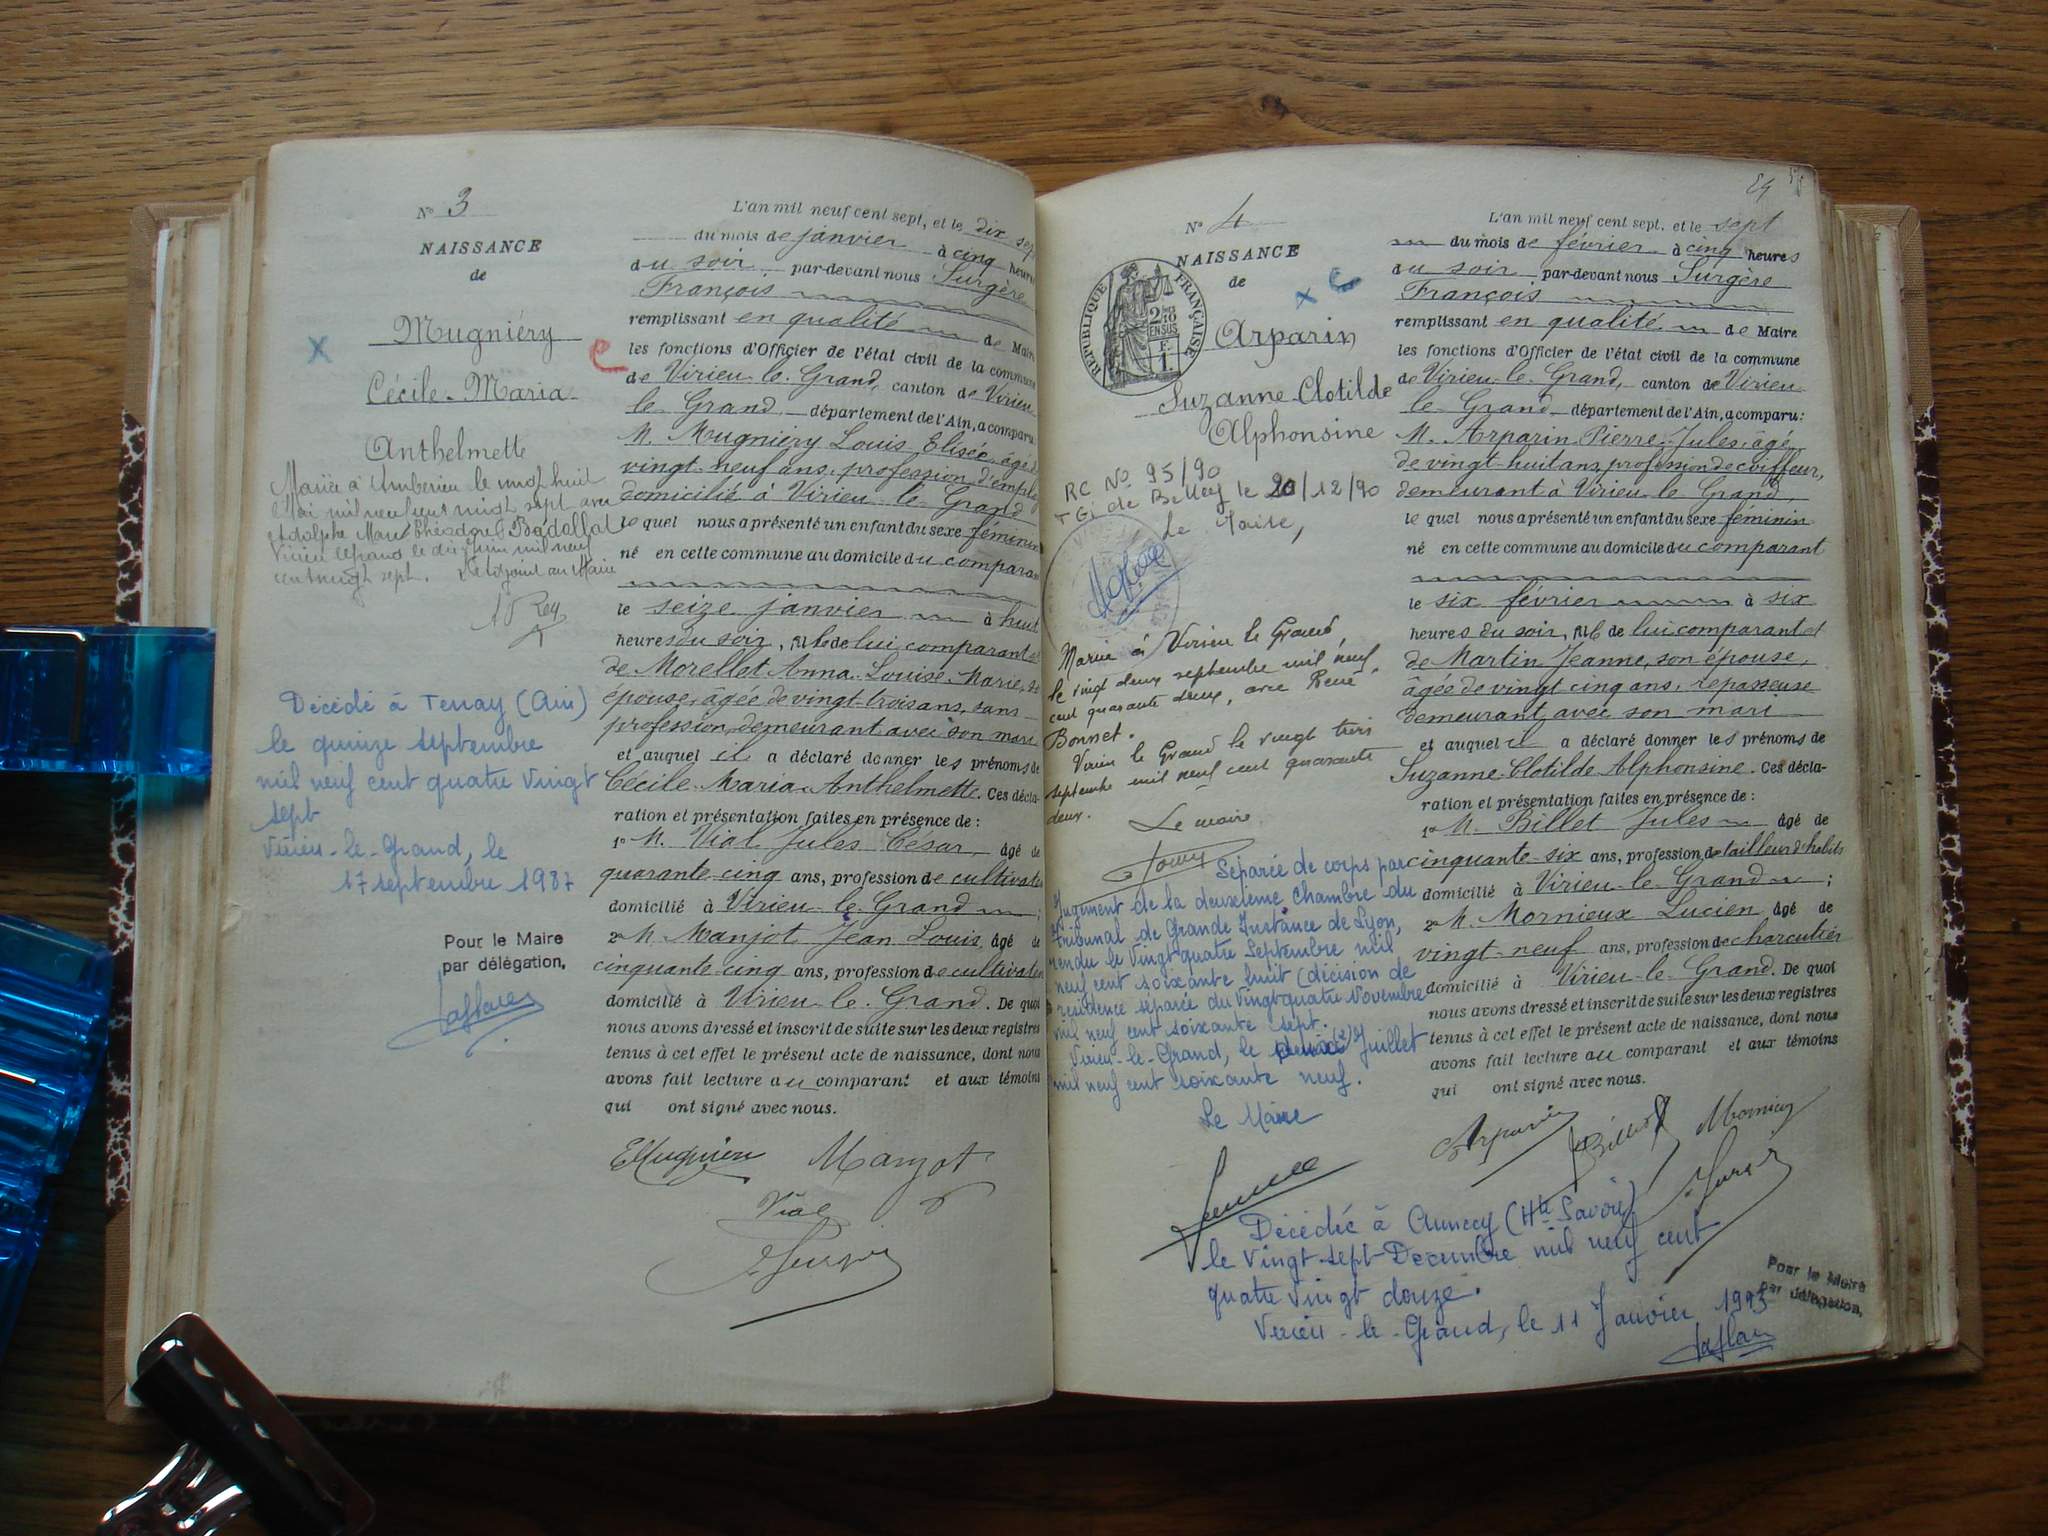 N° 3
NAISSANCE
de
Mugniéry
Cécile-Maria
Anthelmette
Mariée à Ambérieu le vingt huit
Mai mil neuf cent vingt sept avec
Adolphe Marc Théodore Badollat
Virieu le Grand le dix juin mil neuf
cent vingt sept. L'adjoint au Maire
Décédé à Tenay (Ain)
le quinze septembre
mil neuf cent quatre vingt
sept
Virieu-le-Grand, le
17 septembre 1987
Pour le Maire
par délégation,
L'an mil neuf cent sept, et le dix sep
du mois de janvier à cinq heures
du soir, par-devant nous Surgère
François
remplissant en qualité de Maire
les fonctions d'Officier de l'état civil de la commune
de Virieu-le-Grand, canton de Virieu
le Grand département de l'Ain, a comparu:
M. Mugniéry Louis Elisée, âgé de
vingt-neuf ans, profession d'employ
domicilié à Virieu-le-Grand
lequel nous a présenté un enfant du sexe féminin
né en cette commune au domicile du comparan
le seize janvier à huit
heures du soir, fille de lui comparant et
de Morellet Anna-Louise-Marie, so
épouse, âgée de vingt-trois ans, sans
profession, demeurant avec son mari
et auquel il a déclaré donner les prénoms de
Cécile-Maria-Anthelmette. Ces décla-
ration et présentation faites en présence de :
1° M. Vial Jules César, âgé de
quarante-cinq ans, profession de cultivate
domicilié à Virieu-le-Grand ;
2° M. Manjot Jean Louis, âgé de
cinquante-cinq ans, profession de cultivate
domicilié à Virieu-le-Grand. De quoi
nous avons dressé et inscrit de suite sur les deux registres
tenus à cet effet le présent acte de naissance, dont nous
avons fait lecture au comparant et aux témoins
qui ont signé avec nous.
EMugniéry Manjot
Vial
Surgère
N° 4
NAISSANCE
de
RÉPUBLIQUE FRANÇAISE
2/10 EN SUS
F. 1.
Arparin
Suzanne-Clotilde
Alphonsine
RC N° 95/90
TGI de Belley le 20/12/90
Le Maire,
Mariée à Virieu le Grand,
le vingt deux septembre mil neuf
cent quarante deux, avec René
Bonnet.
Virieu le Grand le vingt trois
septembre mil neuf cent quarante
deux.
Le maire
Séparée de corps par
Jugement de la deuxième chambre du
tribunal de Grande Instance de Lyon,
rendu le Vingt quatre Septembre mil
neuf cent soixante huit (décision de
résidence séparée du Vingt quatre Novembre
mil neuf cent soixante sept.
Virieu-le-Grand, le deux (2) Juillet
mil neuf cent soixante neuf.
Le Maire
54
L'an mil neuf cent sept, et le sept
du mois de février à cinq heures
du soir par-devant nous Surgère
François
remplissant en qualité de Maire
les fonctions d'Officier de l'état civil de la commune
de Virieu-le-Grand, canton de Virieu
le Grand département de l'Ain, a comparu:
M. Arparin Pierre-Jules, âgé
de vingt-huit ans, profession de coiffeur,
demeurant à Virieu le Grand,
lequel nous a présenté un enfant du sexe féminin
né en cette commune au domicile du comparant
le six février à six
heures du soir, fille de lui comparant et
de Martin Jeanne, son épouse,
âgée de vingt cinq ans, repasseuse
demeurant avec son mari
et auquel il a déclaré donner les prénoms de
Suzanne-Clotilde Alphonsine. Ces décla-
ration et présentation faites en présence de :
1° M. Billet Jules âgé de
cinquante-six ans, profession de tailleur d'habits
domicilié à Virieu-le-Grand ;
2° M. Mornieux Lucien, âgé de
vingt-neuf ans, profession de charcutier
domicilié à Virieu-le-Grand. De quoi
nous avons dressé et inscrit de suite sur les deux registres
tenus à cet effet le présent acte de naissance, dont nous
avons fait lecture au comparant et aux témoins
qui ont signé avec nous.
Arparin Billet Mornieux
Décédée à Annecy (Hte Savoie)
le Vingt-sept-Décembre mil neuf cent
quatre vingt douze.
Virieu-le-Grand, le 11 Janvier 1993
Pour le Maire
par délégation,